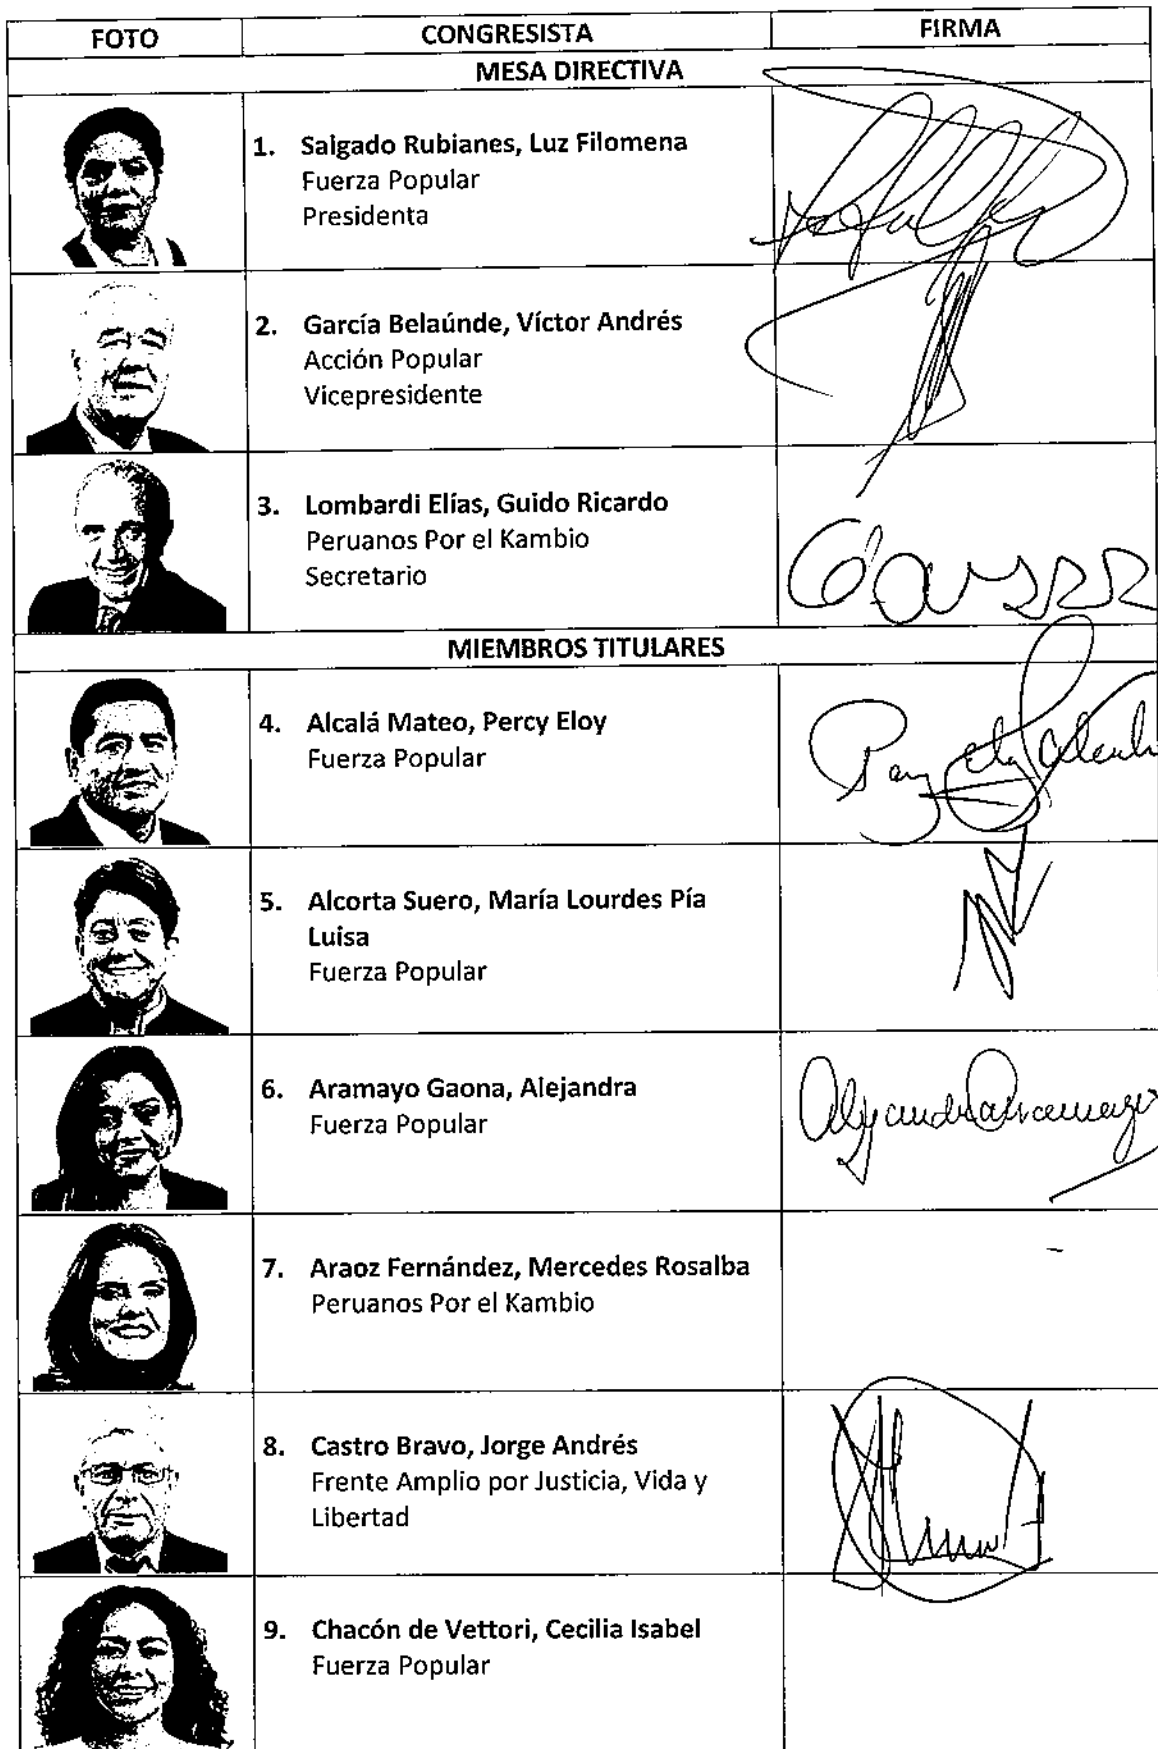 FOTO CONGRESISTA FIRMA
MESA DIRECTIVA
1. Salgado Rubianes, Luz Filomena
Fuerza Popular
Presidenta
2. García Belaúnde, Víctor Andrés
Acción Popular
Vicepresidente
3. Lombardi Elías, Guido Ricardo
Peruanos Por el Kambio
Secretario
MIEMBROS TITULARES
4. Alcalá Mateo, Percy Eloy
Fuerza Popular
5. Alcorta Suero, María Lourdes Pía
Luisa
Fuerza Popular
6. Aramayo Gaona, Alejandra
Fuerza Popular
7. Araoz Fernández, Mercedes Rosalba
Peruanos Por el Kambio
8. Castro Bravo, Jorge Andrés
Frente Amplio por Justicia, Vida y
Libertad
9. Chacón de Vettori, Cecilia Isabel
Fuerza Popular